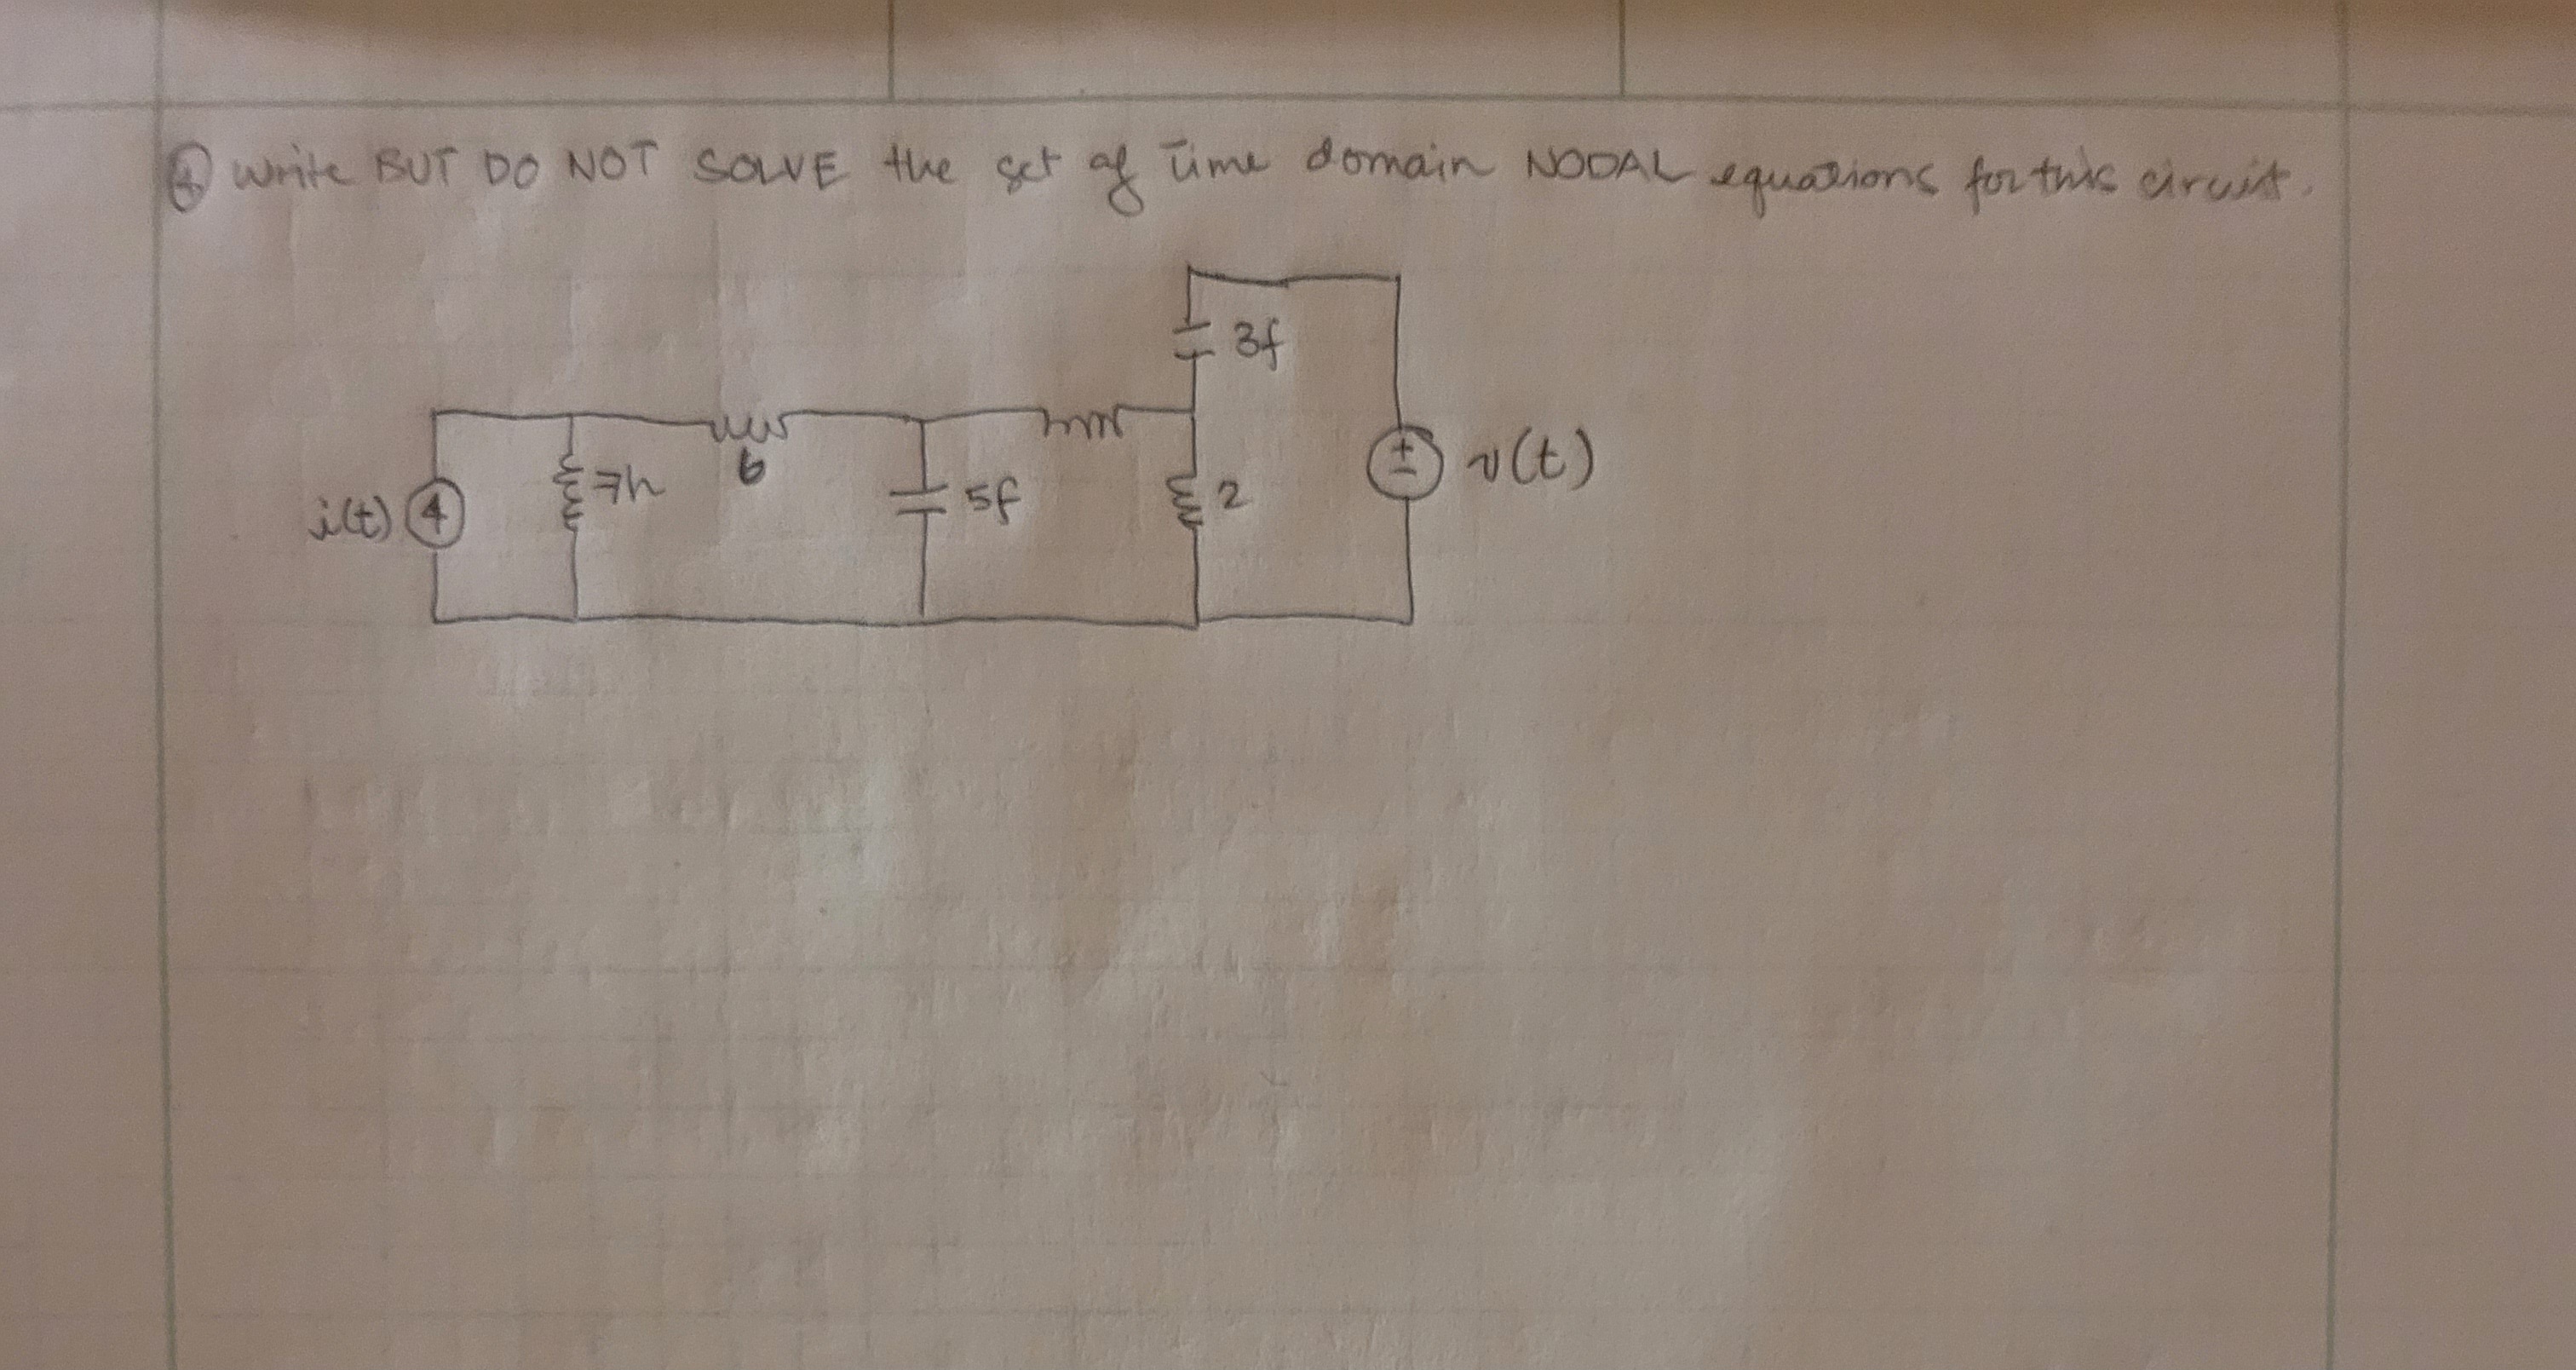 ④ Write BUT DO NOT SOLVE the set of Time domain NODAL equations for this circuit.
3f
i(t)
7h
6
5f
2
+
-
v(t)